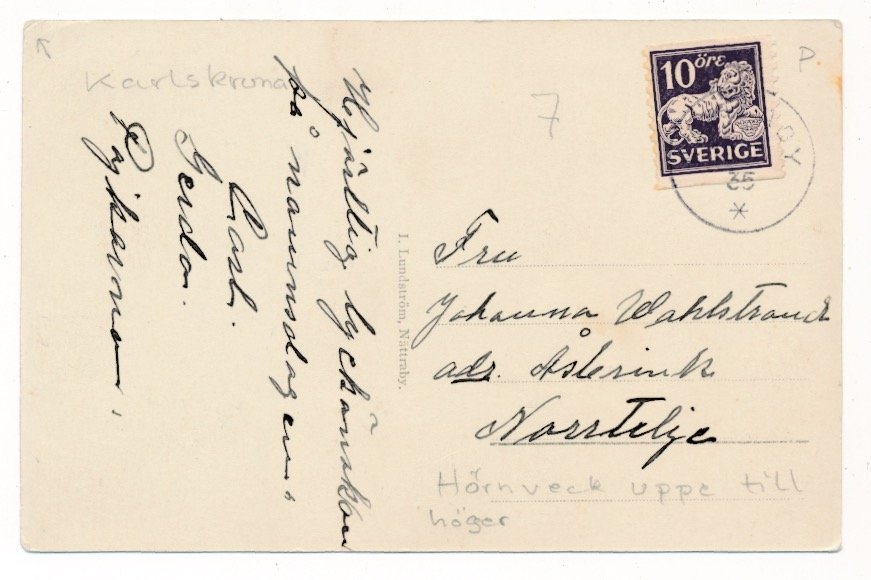 Karlskrona
Hjärtlig lyckönskan
på namnsdagen.
Carl.
Gerda.
Pojkarna.
I. Lundström, Nättraby.
7
P
10 öre
SVERIGE
BY
35
Fru
Johanna Wahlstrand
adr. Åslerink
Norrtelje
Hörnveck uppe till
höger